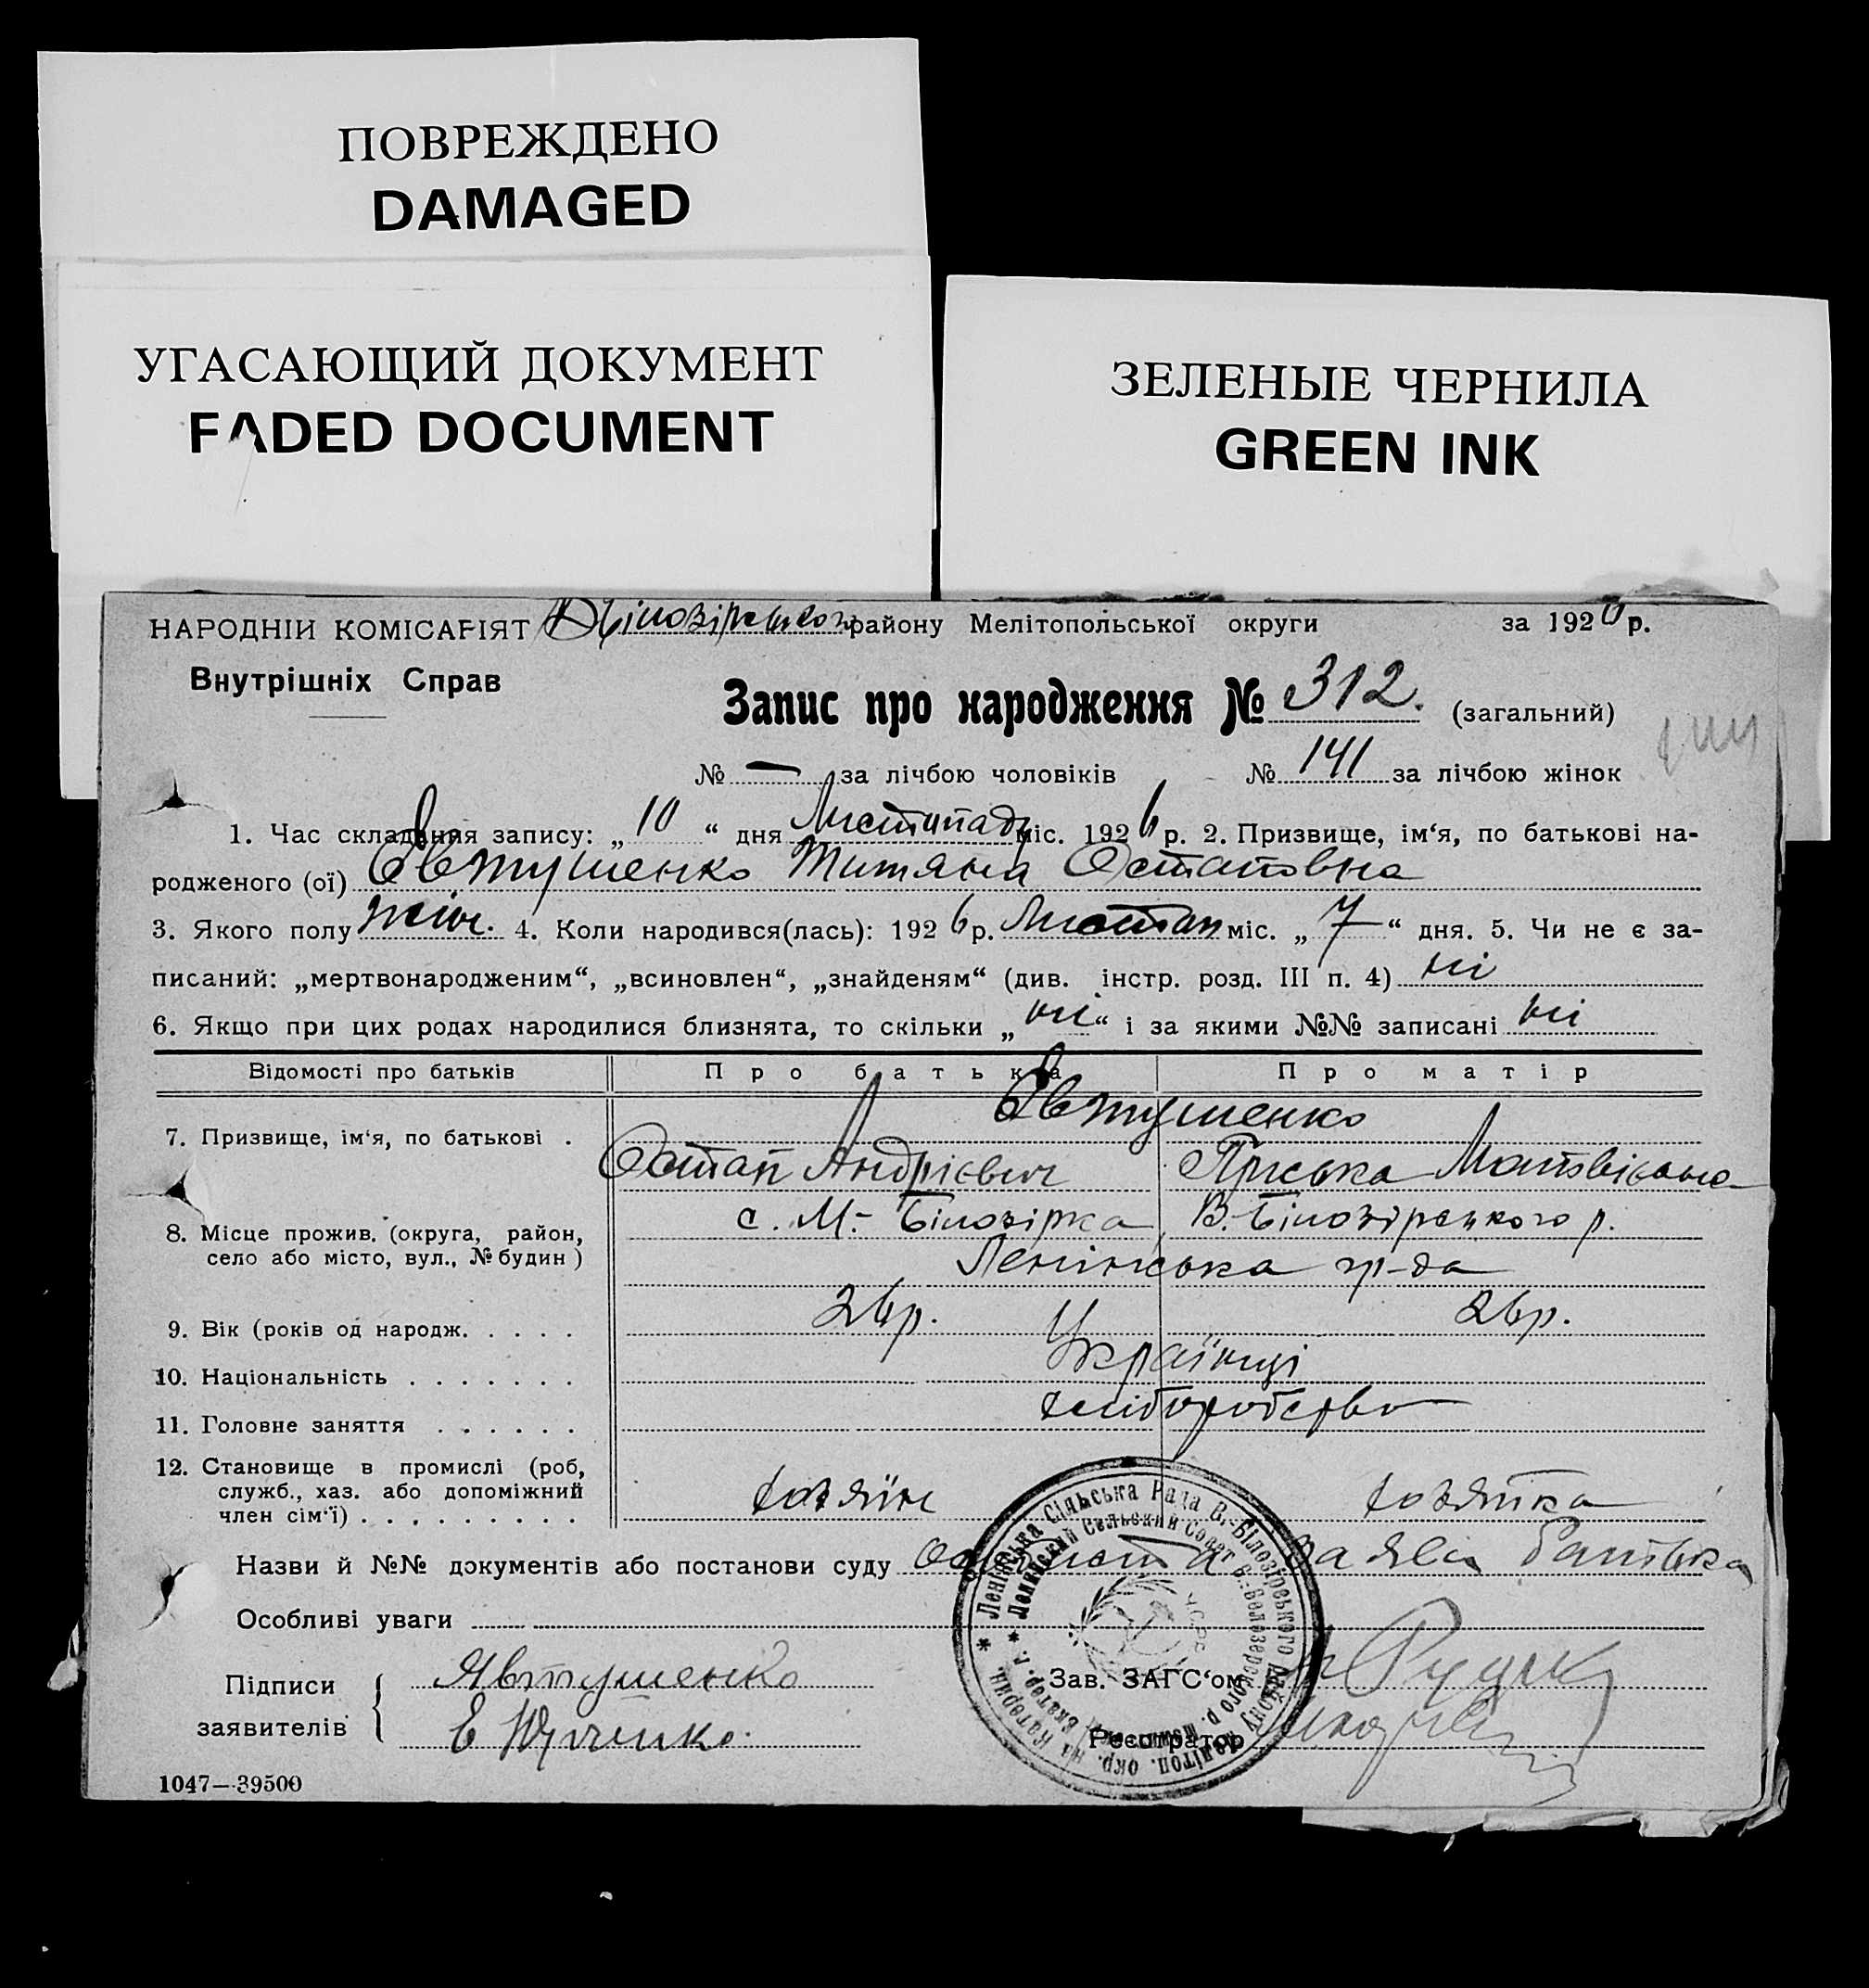 ПОВРЕЖДЕНО
DAMAGED
УГАСАЮЩИЙ ДОКУМЕНТ
FADED DOCUMENT
ЗЕЛЕНЫЕ ЧЕРНИЛА
GREEN INK
НАРОДНІЙ КОМІСАРІЯТ району Мелітопольської округи за 1926 р.
Внутрішніх Справ
Запис про народження № 312. (загальний)
№ — за лічбою чоловіків № 141 за лічбою жінок
1. Час складання запису: „10“ дня Листопаду міс. 1926 р. 2. Призвище, ім‘я, по батькові на-
родженого (ої) Євтушенко Титяна Остаповна
3. Якого полу жін. 4. Коли народився(лась): 1926 р. Листоп міс. „7“ дня. 5. Чи не є за-
писаний: „мертвонародженим“, „всиновлен“, „знайденям“ (див. інстр. розд. III п. 4) ні
6. Якщо при цих родах народилися близнята, то скільки „ні“ і за якими №№ записані ні
Відомості про батьків Про батька Про матір
Євтушенко
7. Призвище, ім‘я, по батькові . Остап Андрієвич Пріська Матвієвна
8. Місце прожив. (округа, район, с. М.-Білозірка В.-Білозірецького р.
село або місто, вул., № будин) Ленінська
9. Вік (років од народж. . . . . 26 р. 26 р.
10. Національність . . . . . . . Українці
11. Головне заняття . . . . . . хліборобство
12. Становище в промислі (роб,
служб., хаз. або допоміжний хозяїн хозяйка
член сім‘ї) . . . . . . . . .
Назви й №№ документів або постанови суду заява батька
Особливі уваги
Підписи Явтушенко Зав. ЗАГС‘ом
заявителів Е Реєстратор
* Ленінська Сільська Рада В.-Білозірського району Мелітоп. окр. на Катерин.
* Ленинский Сельский Совет В.-Белозерского р. Екатер. г.
УСРР
1047—39500